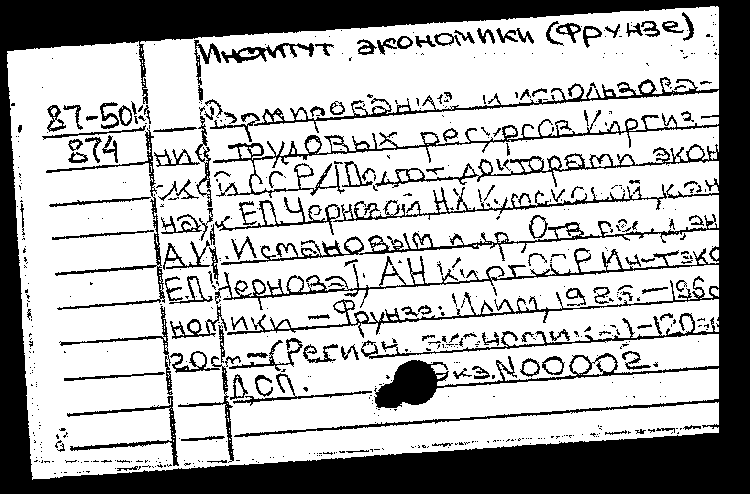 Институт экономики (Фрунзе).
87-50к Формирование и использова-
874 ние трудовых ресурсов Киргиз-
ской ССР/[Подгот. докторами экон
наук Е.П.Черновой, Н.Х.Кумсковой, кан
А.И.Исмановым и др., Отв. ред. д. эк
Е.П.Чернова]; АН КиргССР Ин-т эко
номики. - Фрунзе: Илим, 1986. - 196с
20см. - (Регион. экономика). - 120эк
ДСП. Экз. N00002.